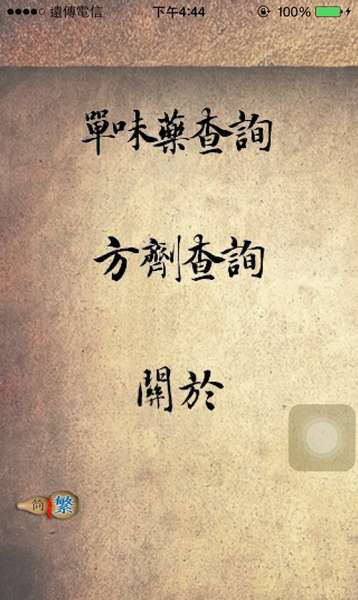 遠傳電信 下午4:44 100%
單味藥查詢
方劑查詢
關於
简 繁